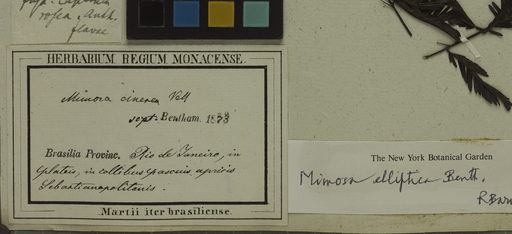 rosea. Anth.
flavae
HERBARIUM REGIUM MONACENSE.
Mimosa cinerea Vell
sept. Bentham. 1838
Brasilia Provinc. Rio de Janeiro, in
in collibus apricis
Sebastianopolitanis.
Martii iter brasiliense.
The New York Botanical Garden
Mimosa elliptica Benth.
R Barn